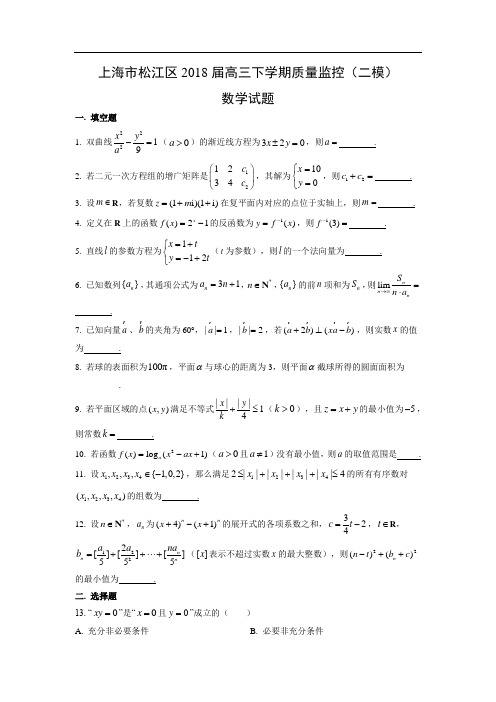 上海市松江区2018届高三下学期质量监控（二模）
数学试题
一. 填空题
1. 双曲线 x²/a² − y²/9 = 1（a > 0）的渐近线方程为 3x ± 2y = 0，则 a = ________.
2. 若二元一次方程组的增广矩阵是 (1 2 c₁; 3 4 c₂)，其解为 {x = 10, y = 0，则 c₁ + c₂ = ________.
3. 设 m ∈ R，若复数 z = (1 + mi)(1 + i) 在复平面内对应的点位于实轴上，则 m = ________.
4. 定义在 R 上的函数 f(x) = 2ˣ − 1 的反函数为 y = f⁻¹(x)，则 f⁻¹(3) = ________.
5. 直线 l 的参数方程为 {x = 1 + t, y = −1 + 2t（t 为参数），则 l 的一个法向量为 ________.
6. 已知数列 {aₙ}，其通项公式为 aₙ = 3n + 1，n ∈ N*，{aₙ} 的前 n 项和为 Sₙ，则 lim(n→∞) Sₙ/(n·aₙ) =
________.
7. 已知向量 a、b 的夹角为 60°，|a| = 1，|b| = 2，若 (a + 2b) ⊥ (xa − b)，则实数 x 的值
为 ________.
8. 若球的表面积为 100π，平面 α 与球心的距离为 3，则平面 α 截球所得的圆面面积为
________.
9. 若平面区域的点 (x, y) 满足不等式 |x|/k + |y|/4 ≤ 1（k > 0），且 z = x + y 的最小值为 −5，
则常数 k = ________.
10. 若函数 f(x) = logₐ(x² − ax + 1)（a > 0 且 a ≠ 1）没有最小值，则 a 的取值范围是 ____.
11. 设 x₁, x₂, x₃, x₄ ∈ {−1, 0, 2}，那么满足 2 ≤ |x₁| + |x₂| + |x₃| + |x₄| ≤ 4 的所有有序数对
(x₁, x₂, x₃, x₄) 的组数为 ________.
12. 设 n ∈ N*，aₙ 为 (x + 4)ⁿ − (x + 1)ⁿ 的展开式的各项系数之和，c = 3/4 t − 2，t ∈ R，
bₙ = [a₁/5] + [2a₂/5²] + ⋯ + [naₙ/5ⁿ]（[x] 表示不超过实数 x 的最大整数），则 (n − t)² + (bₙ + c)²
的最小值为 ________.
二. 选择题
13. “xy = 0”是“x = 0 且 y = 0”成立的（ ）
A. 充分非必要条件 B. 必要非充分条件